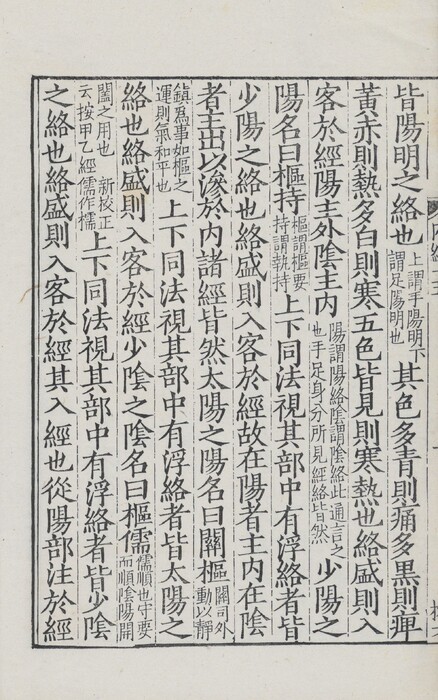 皆陽明之絡也上謂手陽明下謂足陽明也其色多青則痛多黑則痺
黃赤則熱多白則寒五色皆見則寒熱也絡盛則入
客於經陽主外陰主內陽謂陽絡陰謂陰絡此通言之也手足身分所見經絡皆然少陽之
陽名曰樞持樞謂樞要持謂執持上下同法視其部中有浮絡者皆
少陽之絡也絡盛則入客於經故在陽者主內在陰
者主出以滲於內諸經皆然太陽之陽名曰關樞關司外動以靜
鎮爲事如樞之運則氣和平也上下同法視其部中有浮絡者皆太陽之
絡也絡盛則入客於經少陰之陰名曰樞儒儒順也守要而順陰陽開
闔之用也 新校正云按甲乙經儒作檽上下同法視其部中有浮絡者皆少陰
之絡也絡盛則入客於經其入經也從陽部注於經